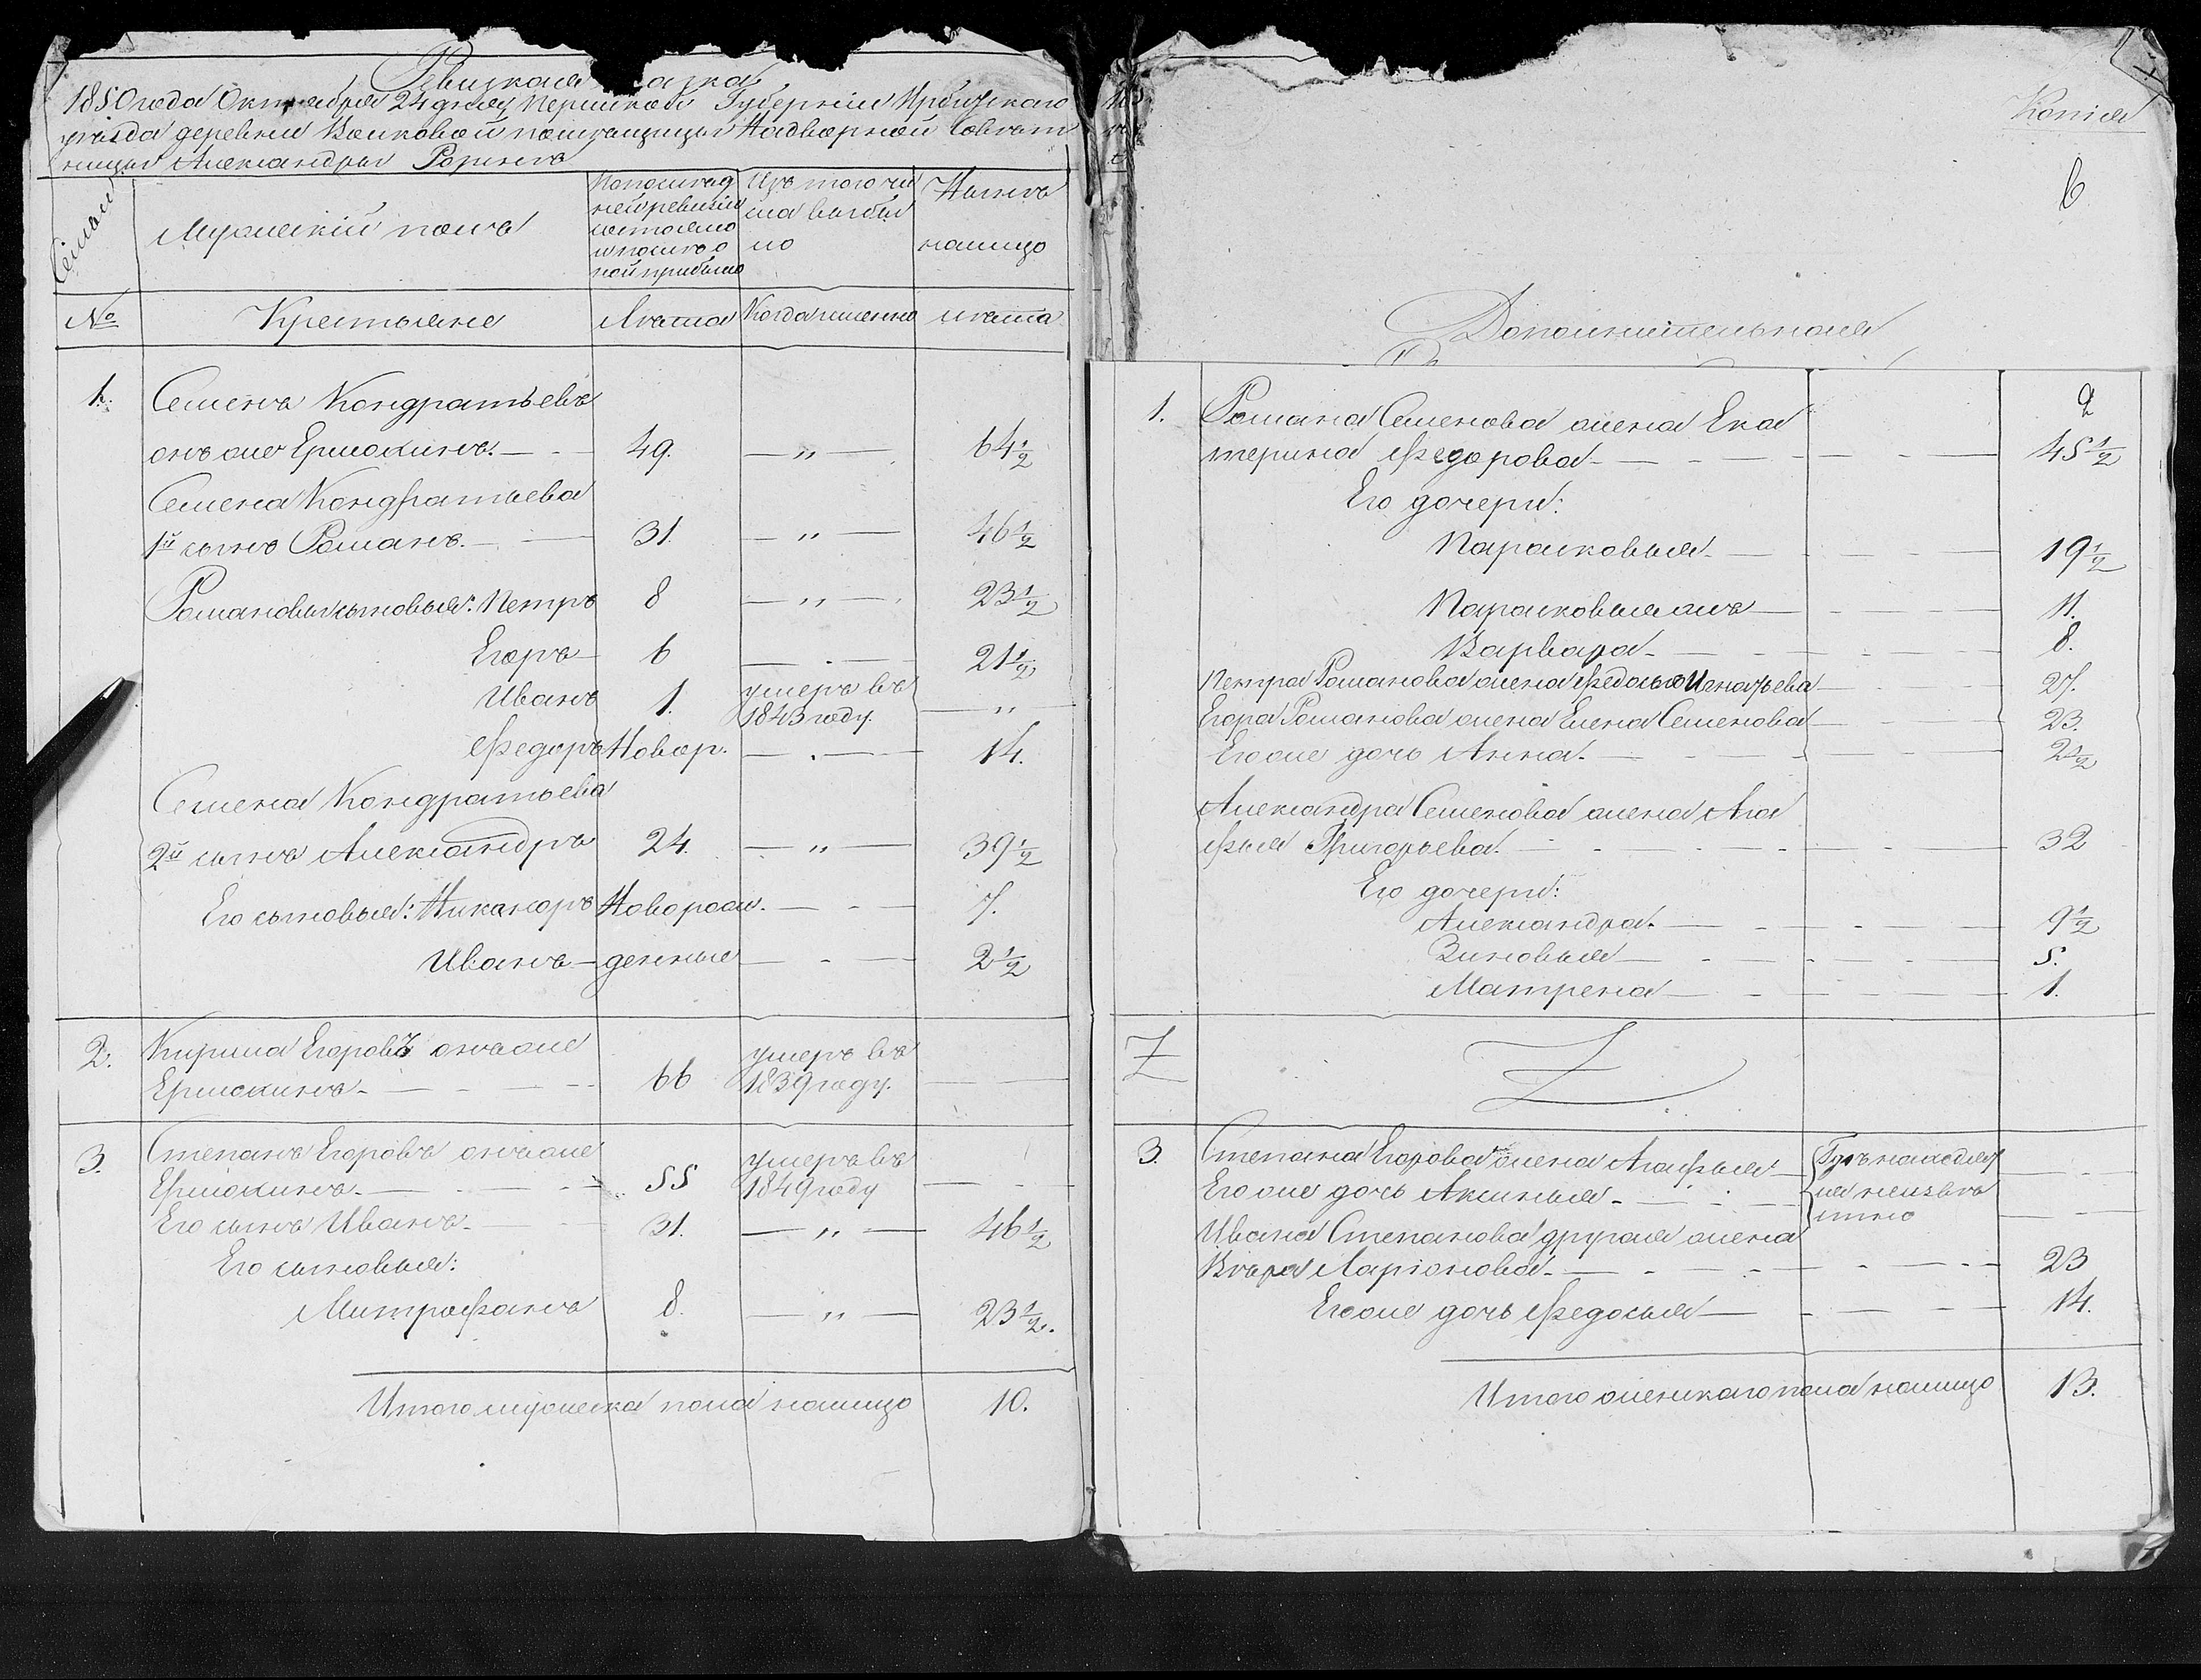 Ревизкая сказка
1850 года Октября 24 дня Пермской Губернiи Ирбитскаго
уѣзда деревни Волковой помѣщицы Надворной Совѣт
ницы Александры
Семьи
Мужескiй полъ
По послѣд
ней ревизiи
состояло
и послѣ о
ной прибыло
Изъ того чи
сла выбы
ло
Нынѣ
налицо
№
Крестьяне
Лѣта
Когда именно
лѣта
1.
Семенъ Кондратьевъ
онъ же Ермокинъ. 49. — " — 64 1/2
Семена Кондратьева
1й сынъ Романъ. 31. — " — 46 1/2
Романовы сыновья: Петръ 8 — " — 23 1/2
Егоръ 6 — . — 21 1/2
Иванъ 1. умеръ въ
1843 году. — " —
Федоръ Новор. — . — 14.
Семена Кондратьева
2й сынъ Александръ 24. — " — 39 1/2
Его сыновья: Никаноръ Новорож. — - — 7.
Иванъ — денные — - — 2 1/2
2. Кирила Егоровъ онъ же умеръ въ
Ермокинъ 66 1839 году. —
3. Степанъ Егоровъ онъ же умеръ въ
Ермокинъ. 55 1849 году — - —
Его сынъ Иванъ. 31. — " — 46 1/2
Его сыновья:
Митрофанъ 8. — " — 23 1/2.
Итого мужеска пола налицо 10.
Копiя
6
Дополнительная
2
1. Романа Семенова жена Ека
терина Федорова 45 1/2
Его дочери:
Парасковья 19 1/2
Парасковья жъ 11.
Варвара 8.
Петра Романова жена Федосья Игнатьева 27.
Егора Романова жена Елена Семенова 23.
Его же дочь Анна. 2 1/2
Александра Семенова жена Ага
фья Григорьева. 32
Его дочери:
Александра. 9 1/2
Зиновья 5.
Матрена 1.
3. Степана Егорова жена Агафья Гдѣ находят
Его же дочь Аксинья ся неизвѣ
стно
Ивана Степанова другая жена
Вѣра Ларiонова 23
Его же дочь Федосья 14.
Итого женскаго пола налицо 13.